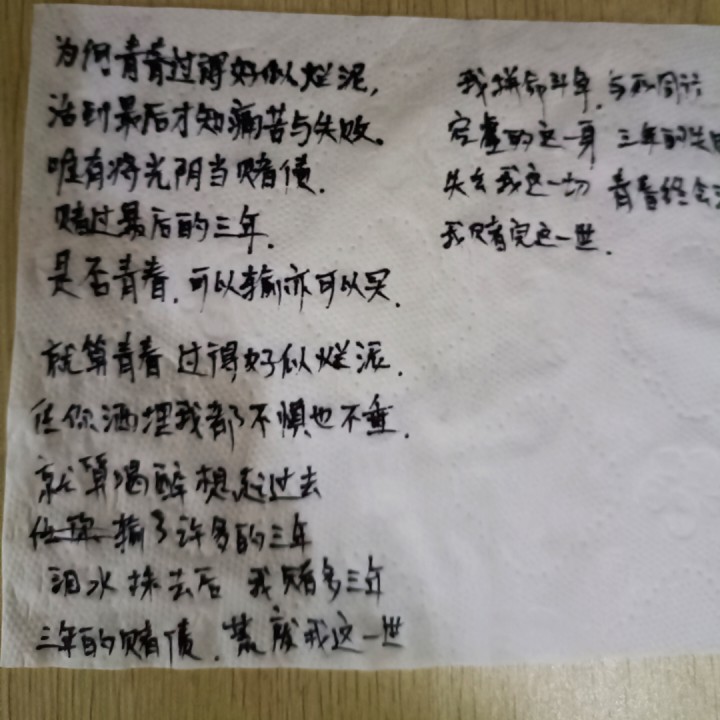 为何青春过得好似烂泥,
活到最后才知痛苦与失败。
唯有将光阴当赌债.
赌过最后的三年.
是否青春.可以输亦可以买.
就算青春过得好似烂泥.
任你洒埋我都不惧也不垂.
就算喝醉想起过去
输了许多的三年
泪水抹去后 我赌多三年
三年的赌债. 我这一世
我拼命斗争.与
空虚的这一身 三年的失
失去我这一切 青春终会
我赌完这一世.